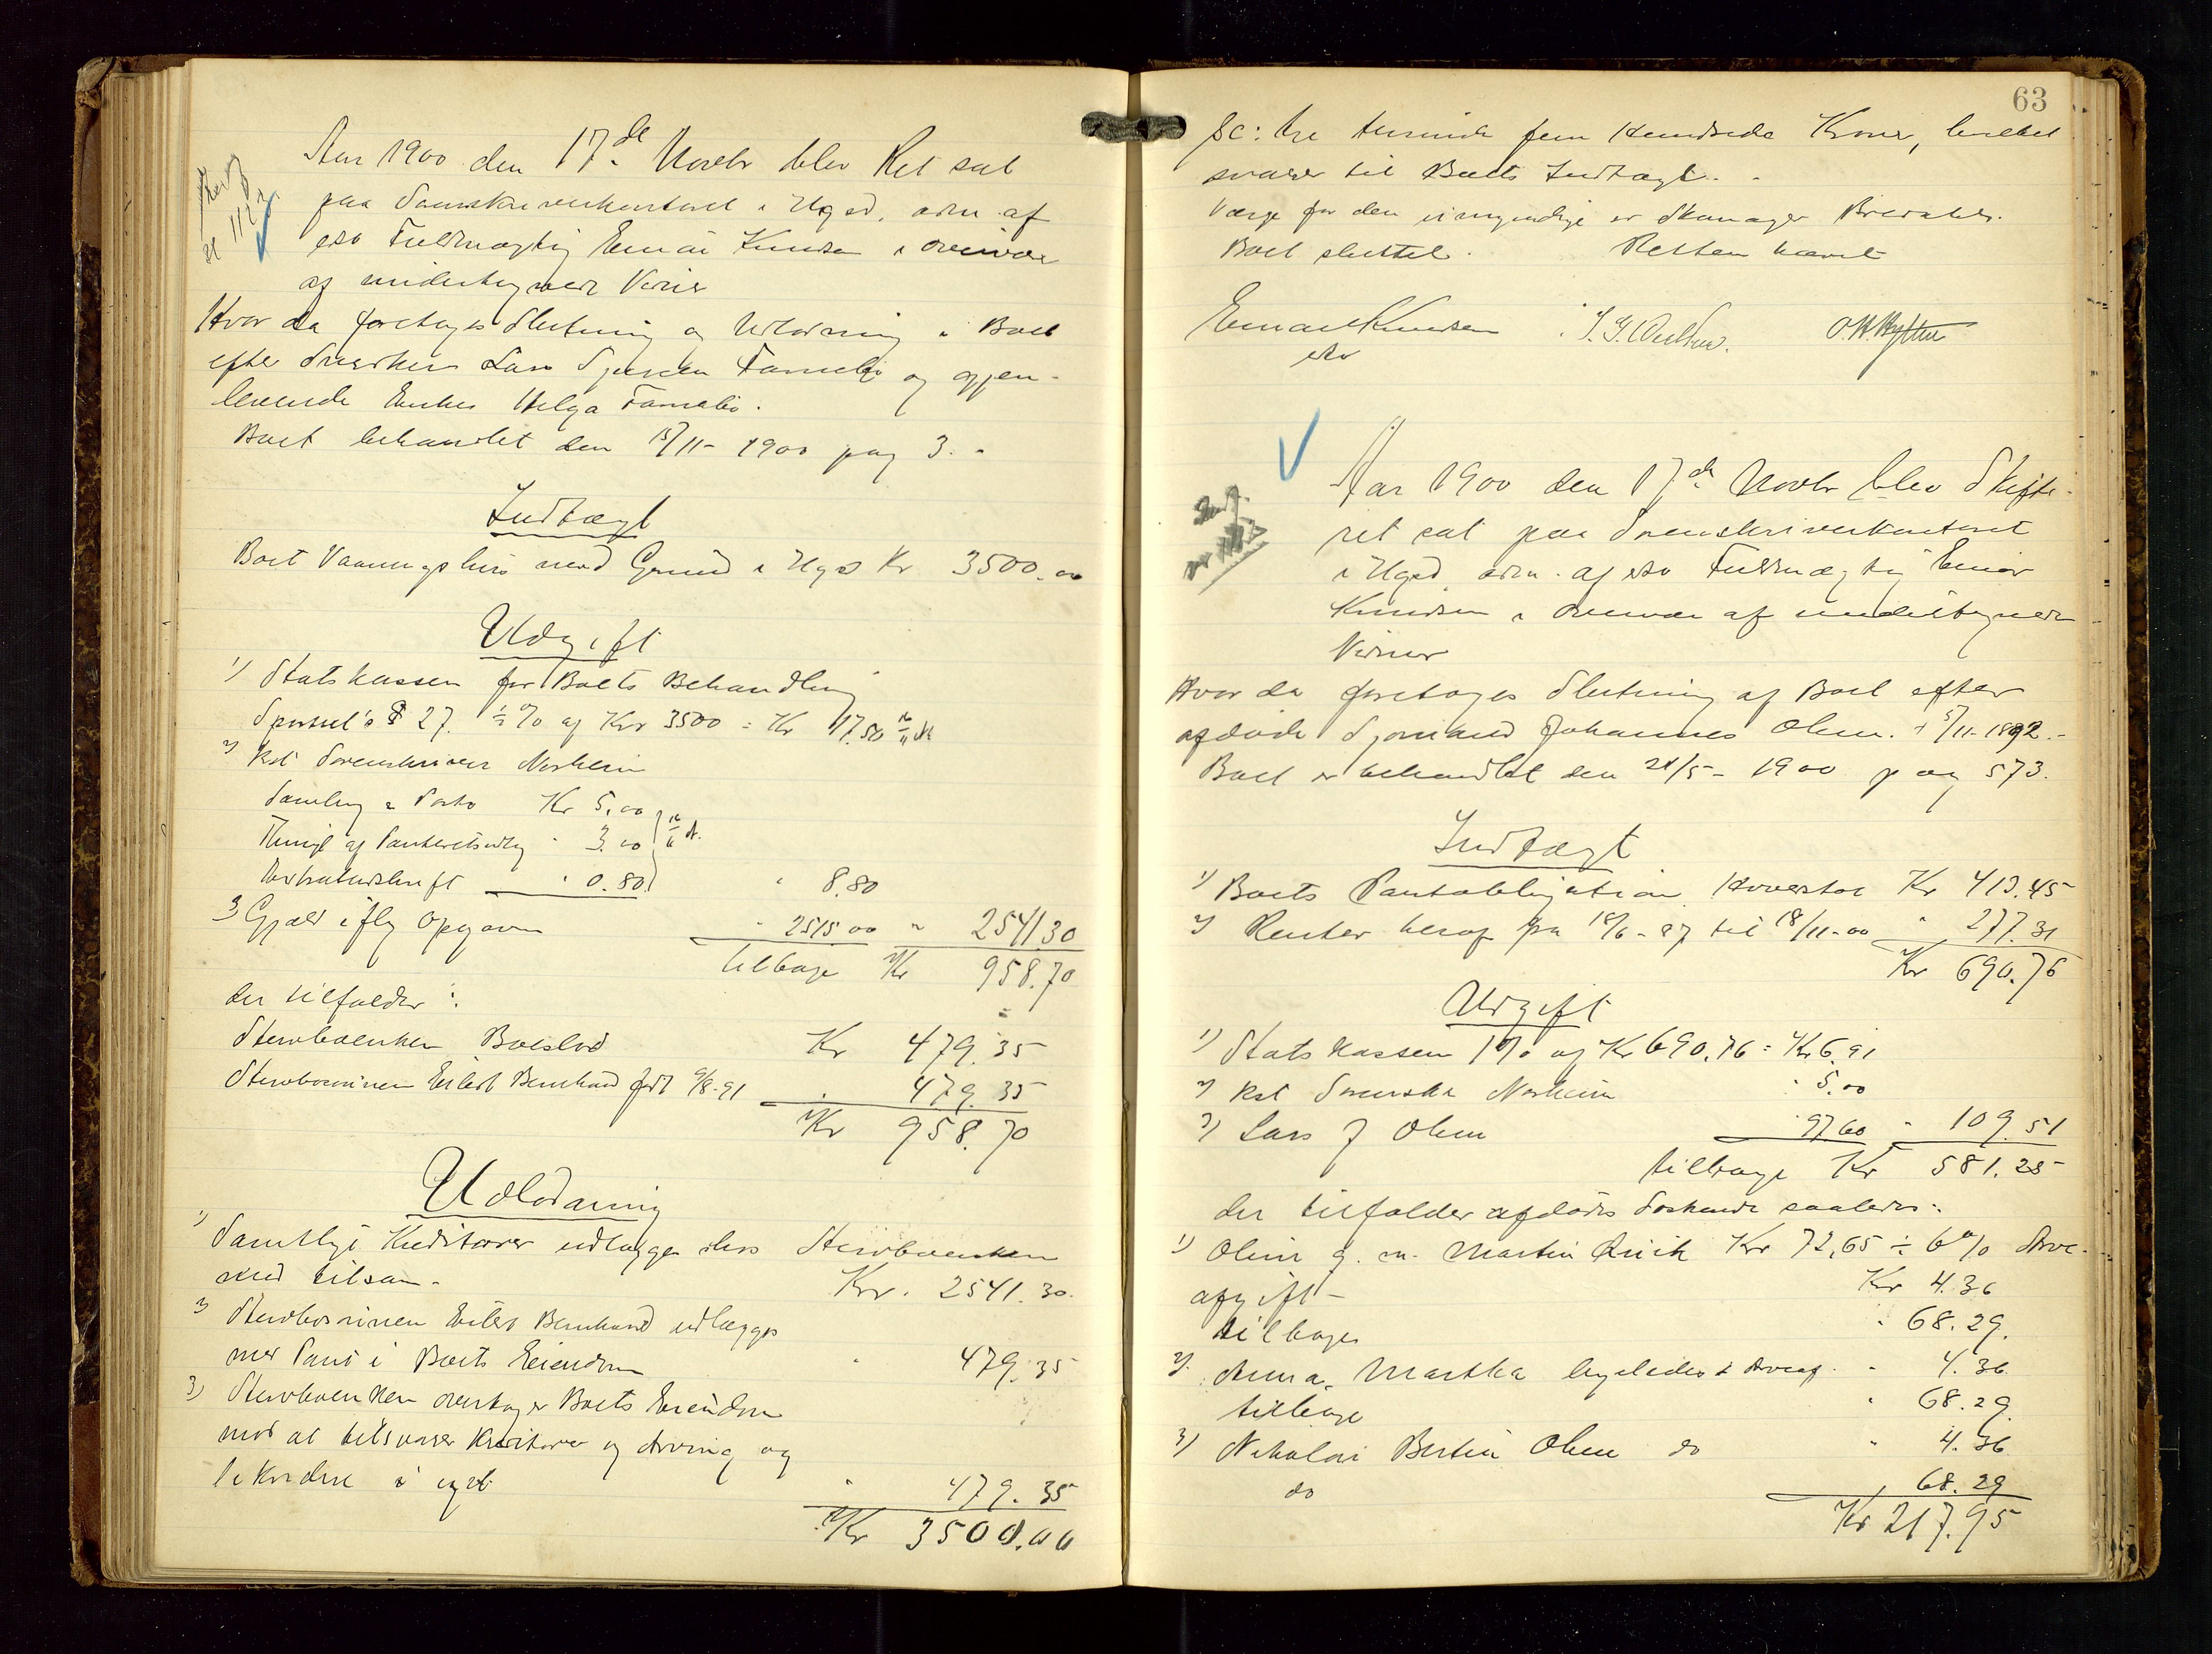 Aar 1900 den 17de Novbr blev Ret sat
paa Sorenskriverkontoret i Hgsd, adm. af
eso Fuldmægtig Einar Knudsen i Overvær
af undertegnede Vidner
Hvor da foretoges Slutning og Udlodning i Boet
efter Snedker Lars Tjensen og gjen-
levende Enke Helga
Boet behandlet den 15/11 - 1900 pag 3.
Indtægt
Boet Vaaningshus med Grund i Hgsd Kr 3500.00
Udgift
1) Statskassen for Boets Behandling
Sportel's § 27. ½% af Kr 3500 = Kr 17.50
2) Kst Sorenskriver Norheim
Samling & Porto Kr 5.00
Thingl af Panteretsudlæg " 3.00
Extraktudskrift " 0.80 " 8.80
3) Gjæld iflg Opgaven " 2515.00 " 2541.30
tilbage Kr 958.70
der tilfalder:
Stervboenken Boeslod Kr 479.35
Stervbosønnen Eilert Bernhard født 9/8-91 " 479.35
Kr 958.70
Udlodning
1) Samtlige Kreditorer udlægges hos Stervboenken
med tilsam. Kr. 2541.30
2) Stervbosønnen Eilert Bernhard udlægges
med Pant i Boets Eiendom " 479.35
3) Stervboenken overtager Boets Eiendom
mod at tilsvare Kreditorer og Arving og
bekommer i eget " 479.35
Kr 3500.00
63
sc: tre tusinde fem Hundrede Kroner, hvilket
svarer til Boets Indtægt.
Værge for den umyndige er Skomager
Boet sluttet. Retten hævet
Einar Knudsen
eso
Aar 1900 den 17de Novbr blev Skifte-
ret sat paa Sorenskriverkontoret
i Hgsd, adm. af eso Fuldmægtig Einar
Knudsen i Overvær af undertegnede
Vidner
Hvor da foretoges Slutning af Boet efter
afdøde Sjømand Johannes Olsen. † 5/11-1892.
Boet er behandlet den 21/5 - 1900 pag 573.
Indtægt
1) Boets Pantobligation Hovedstol Kr 413.45
2) Renter heraf fra 18/6-87 til 18/11-00 " 277.31
Kr 690.76
Udgift
1) Statskassen 1% af Kr 690.76 = Kr 6.91
2) Kst Sorenskr Norheim " 5.00
3) Lars J Olsen " 97.60 " 109.51
tilbage Kr 581.25
der tilfalder afdødes Søskende saaledes:
1) Oline g. m. Martin Kr 72,65 ÷ 6% Arve-
afgift - Kr 4.36
tilbage " 68.29.
2) Anna Martha ligeledes ÷ Arveaf. " 4.36
tilbage " 68.29.
3) Nikolai Bertin Olsen do " 4.36
do 68.29
Kr 217.95